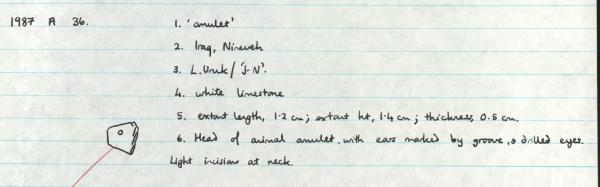 1987 A 36. 1. 'amulet'
2. Iraq, Nineveh
3. L.Uruk/'J-N'.
4. white limestone
5. extant length, 1.2 cm; extant ht, 1.4 cm; thickness 0.5 cm.
6. Head of animal amulet, with ears marked by groove, & drilled eyes.
Light incisions at neck.